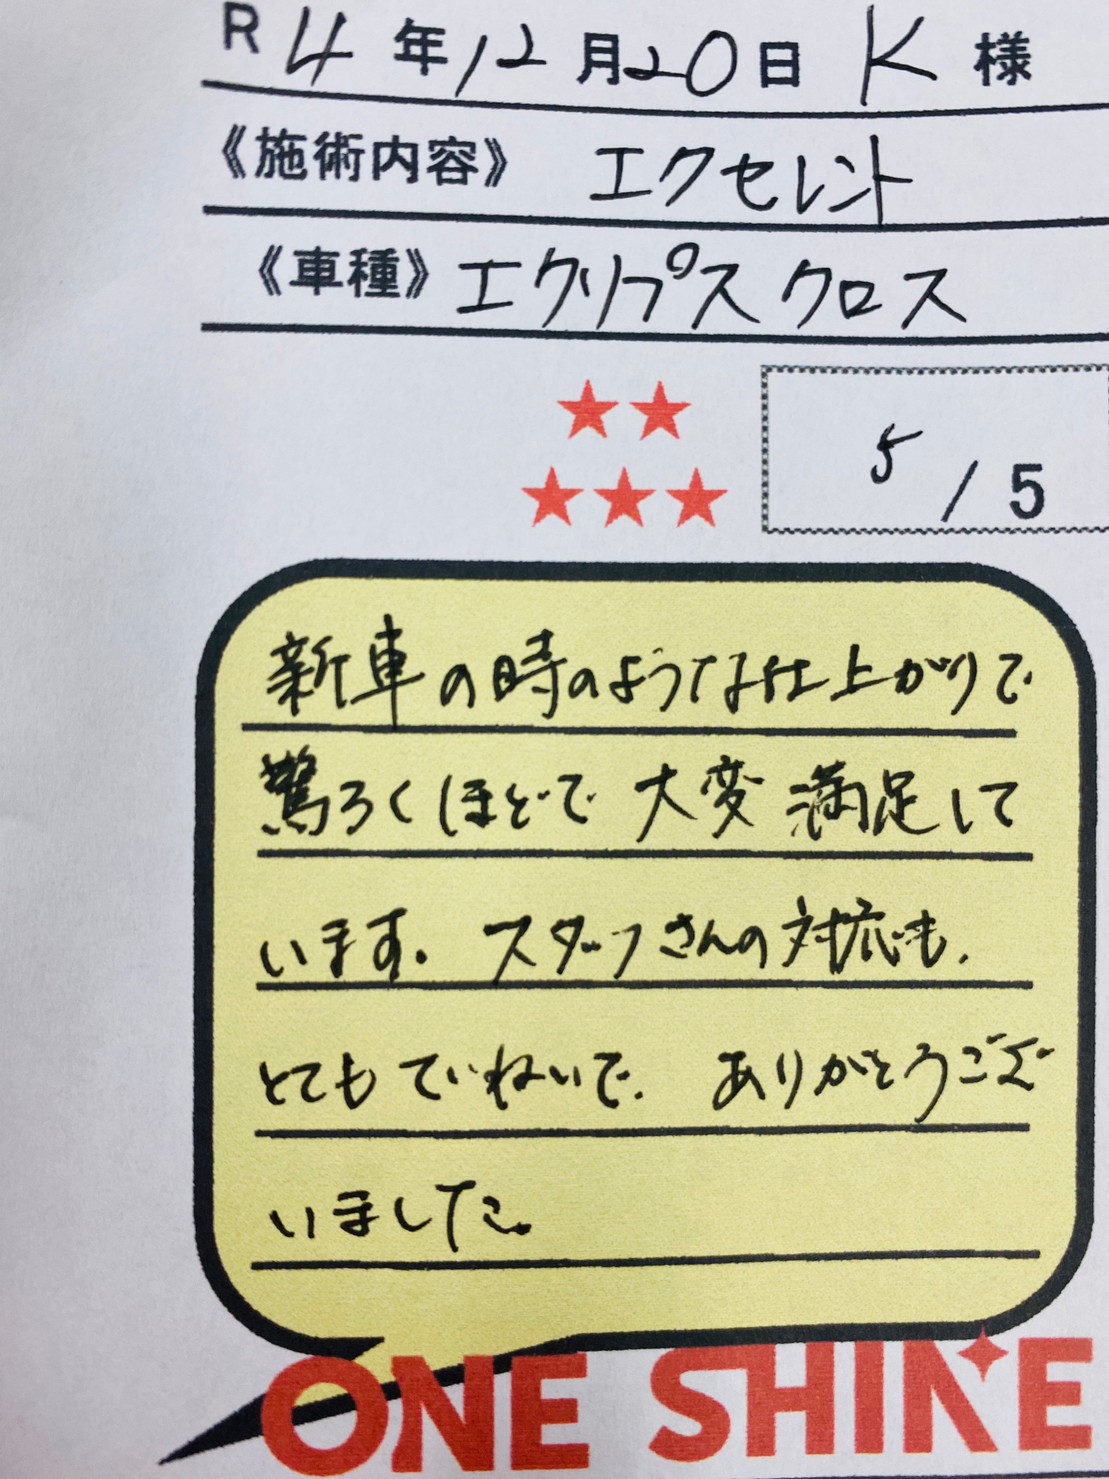 R4年12月20日 K 様
《施術内容》 エクセレント
《車種》エクリプスクロス
5/5
新車の時のような仕上がりで
驚ろくほどで 大変 満足して
います。スタッフさんの対応も、
とてもていねいで、ありがとうござ
いました。
ONE SHINE